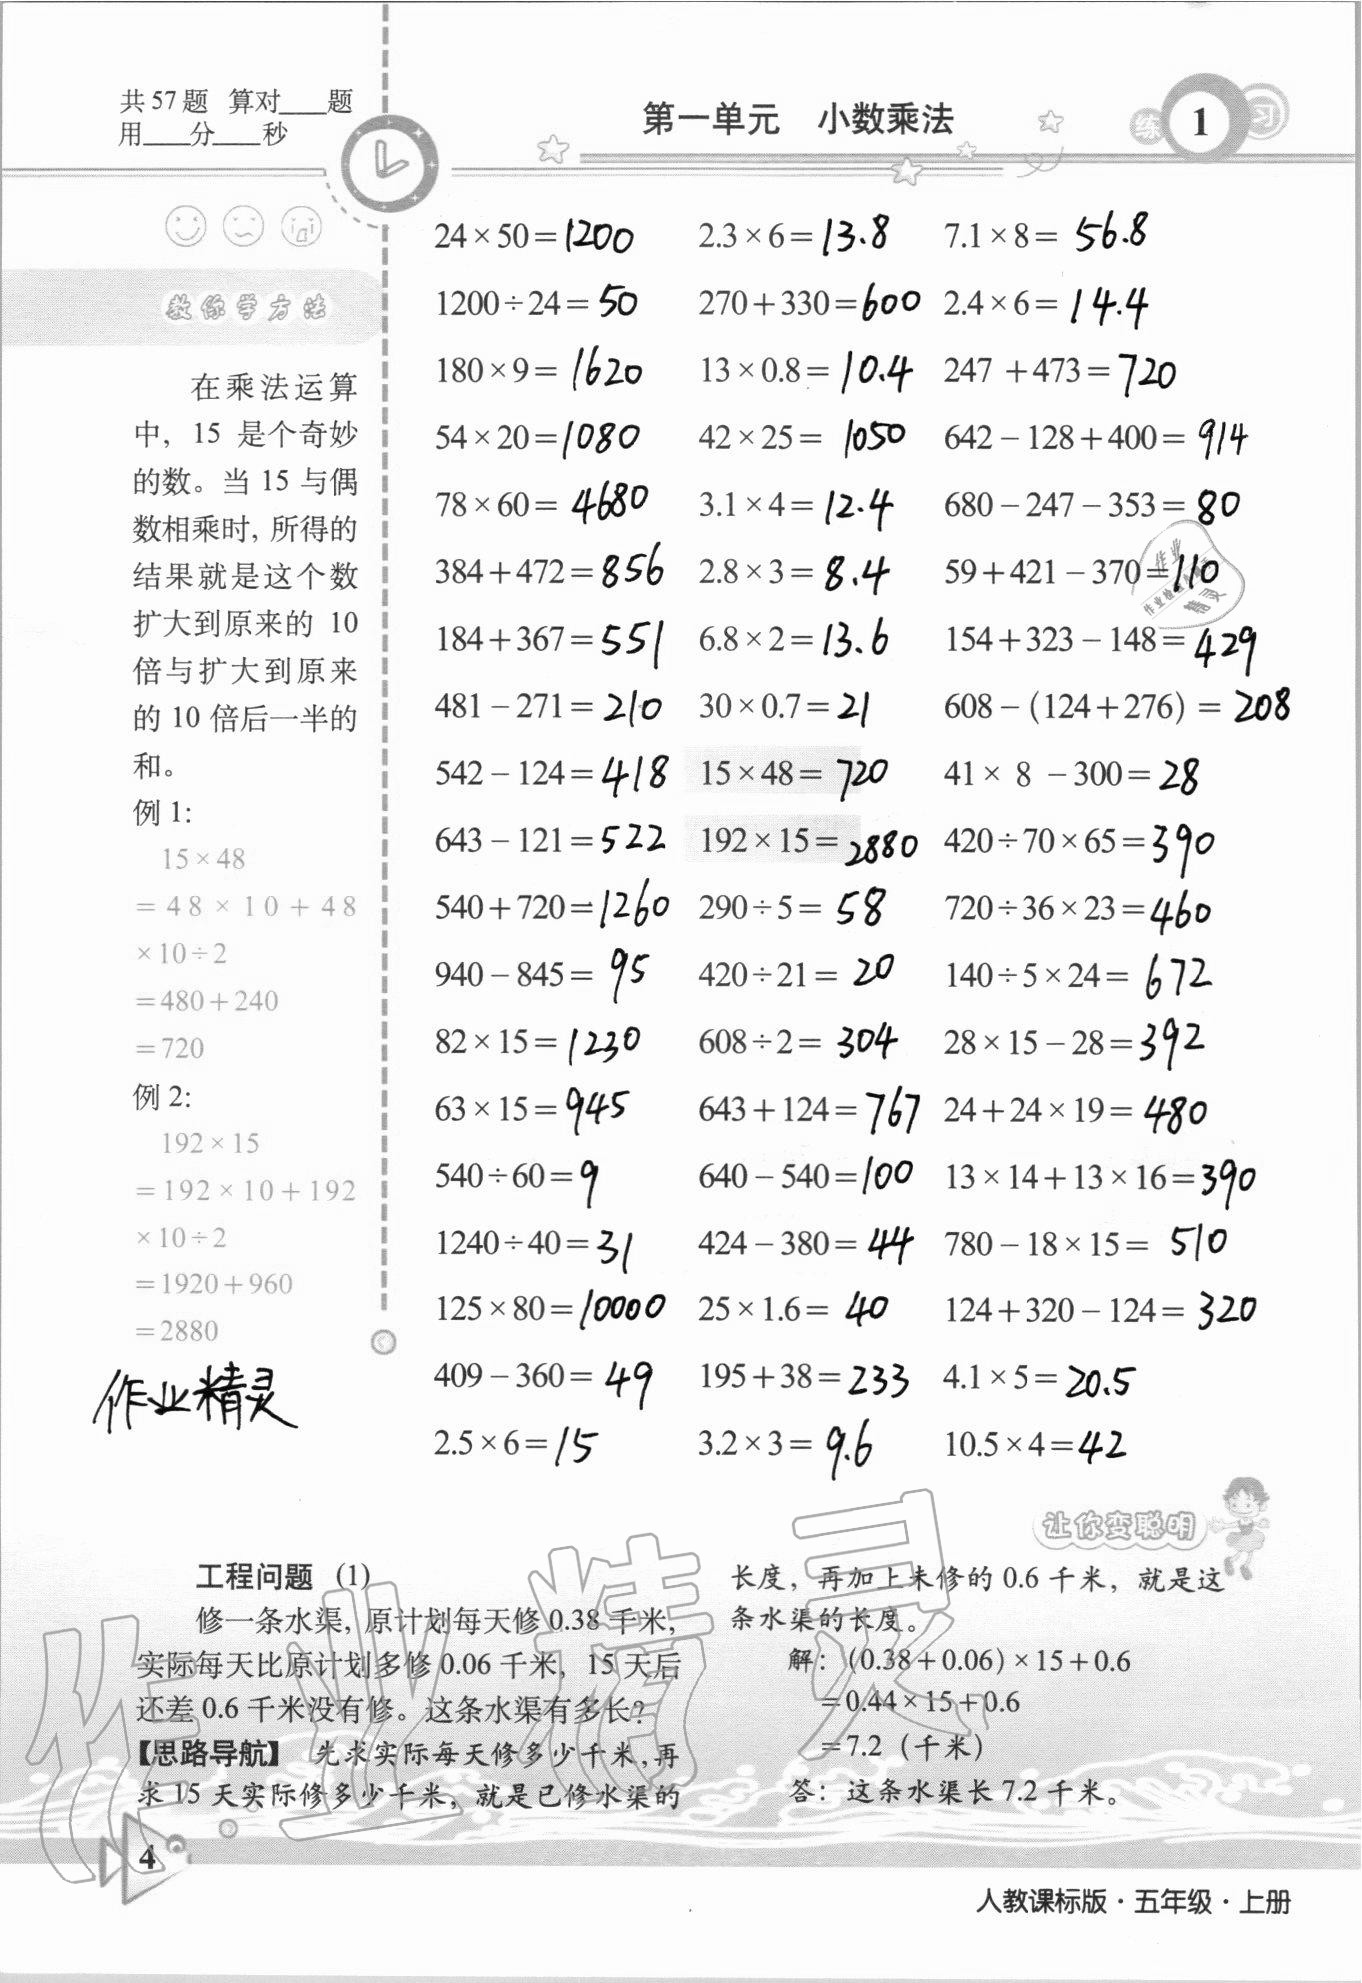 共57题 算对____题
用____分____秒
第一单元 小数乘法
练 1 习
教你学方法
在乘法运算
中，15 是个奇妙
的数。当 15 与偶
数相乘时，所得的
结果就是这个数
扩大到原来的 10
倍与扩大到原来
的 10 倍后一半的
和。
例 1：
15×48
=48×10+48
×10÷2
=480+240
=720
例 2：
192×15
=192×10+192
×10÷2
=1920+960
=2880
作业精灵
24×50=1200 2.3×6=13.8 7.1×8=56.8
1200÷24=50 270+330=600 2.4×6=14.4
180×9=1620 13×0.8=10.4 247+473=720
54×20=1080 42×25=1050 642-128+400=914
78×60=4680 3.1×4=12.4 680-247-353=80
384+472=856 2.8×3=8.4 59+421-370=110
184+367=551 6.8×2=13.6 154+323-148=429
481-271=210 30×0.7=21 608-(124+276)=208
542-124=418 15×48=720 41×8-300=28
643-121=522 192×15=2880 420÷70×65=390
540+720=1260 290÷5=58 720÷36×23=460
940-845=95 420÷21=20 140÷5×24=672
82×15=1230 608÷2=304 28×15-28=392
63×15=945 643+124=767 24+24×19=480
540÷60=9 640-540=100 13×14+13×16=390
1240÷40=31 424-380=44 780-18×15=510
125×80=10000 25×1.6=40 124+320-124=320
409-360=49 195+38=233 4.1×5=20.5
2.5×6=15 3.2×3=9.6 10.5×4=42
让你变聪明
工程问题 (1)
修一条水渠，原计划每天修 0.38 千米，
实际每天比原计划多修 0.06 千米，15 天后
还差 0.6 千米没有修。这条水渠有多长？
【思路导航】 先求实际每天修多少千米，再
求 15 天实际修多少千米，就是已修水渠的
长度，再加上未修的 0.6 千米，就是这
条水渠的长度。
解：(0.38+0.06)×15+0.6
=0.44×15+0.6
=7.2（千米）
答：这条水渠长 7.2 千米。
作业精灵
4
人教课标版·五年级·上册